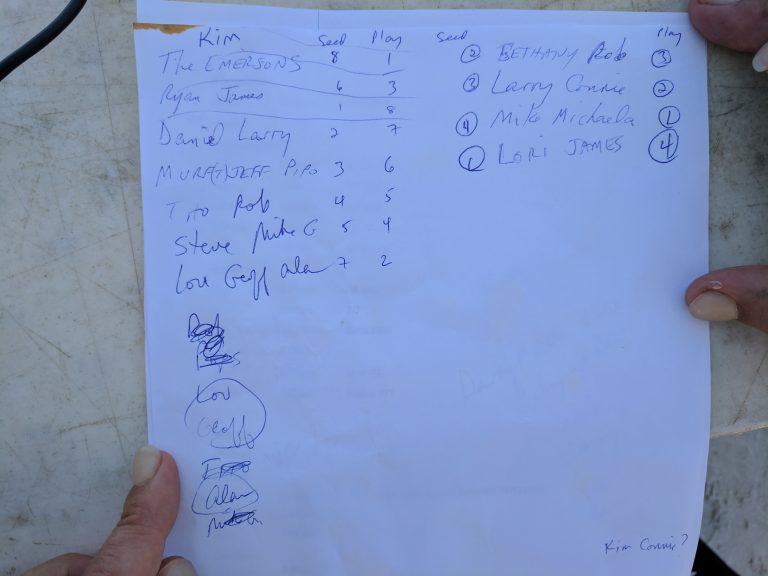 Kim Seed Play
The EMERSONS 8 1
Ryan James 6 3
1 8
Daniel Larry 2 7
JEFF PIPO 3 6
TITO Rob 4 5
Steve Mike G 5 4
Lou Geoff Alan 7 2
Lou
Geoff
Alan
Seed Play
2 BETHANY Rob 3
3 Larry Connie 2
4 Mike Michaela 1
1 LORI JAMES 4
Kim Connie?